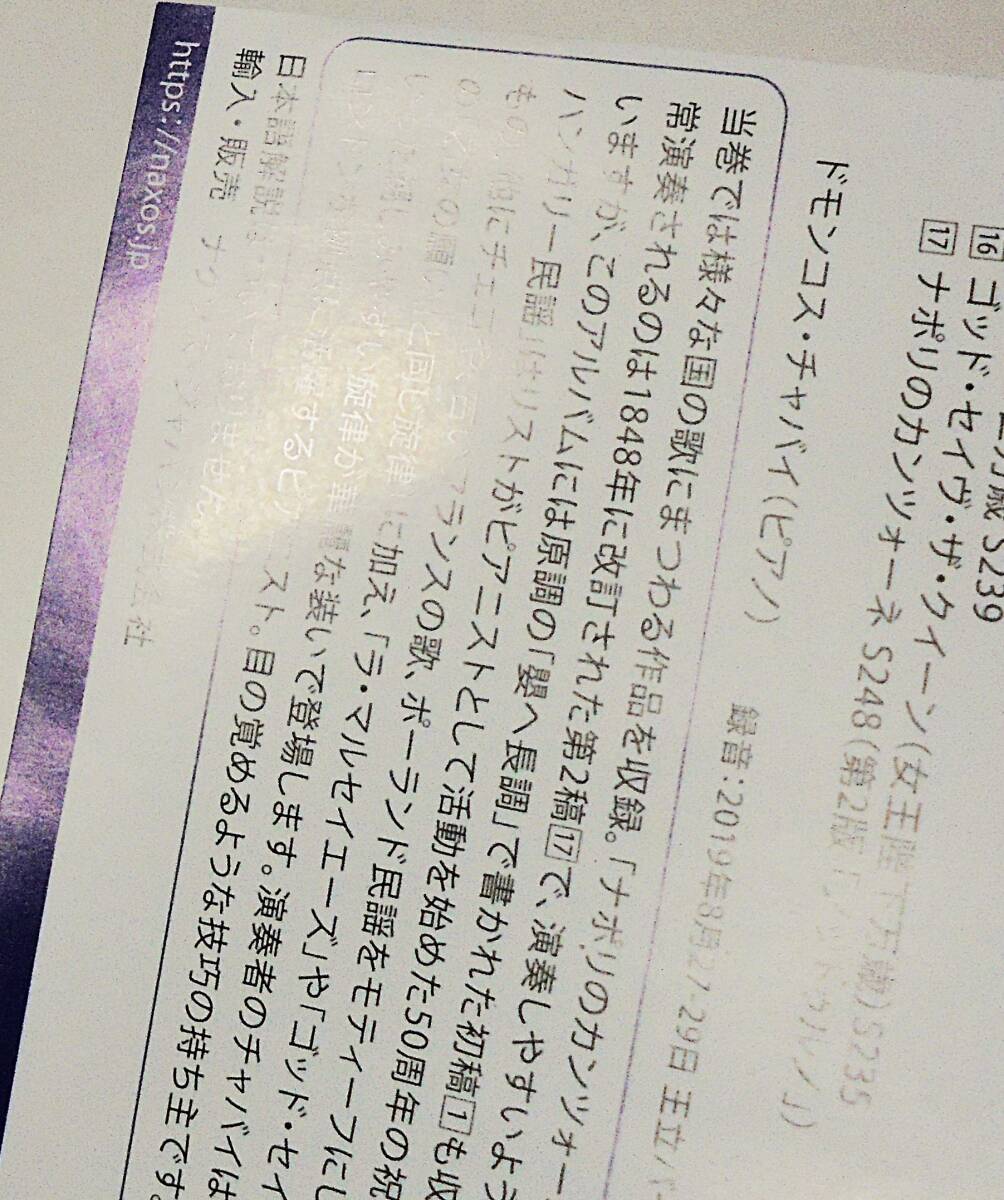 万歳 S239
16 ゴッド・セイヴ・ザ・クイーン(女王陛下万歳) S235
17 ナポリのカンツォーネ S248 (第2版
ドモンコス・チャバイ(ピアノ)
録音:2019年8月27-29日 王立バー
当巻では様々な国の歌にまつわる作品を収録。「ナポリのカンツォー
常演奏されるのは1848年に改訂された第2稿17で、演奏しやすいよう
いますが、このアルバムには原調の「嬰ヘ長調」で書かれた初稿1も収
ハンガリー民謡」はリストがピアニストとして活動を始めた50周年の祝
もの。他にチェコや フランスの歌、ポーランド民謡をモティーフにし
と同じ旋律 に加え、「ラ・マルセイエーズ」や「ゴッド・セイ
すい旋律が華麗な装いで登場します。演奏者のチャバイは
活躍するピ スト。目の覚めるような技巧の持ち主です。
日本語解説は ません。
輸入・販売 ナクソス・ジャパン 会社
https://naxos.jp